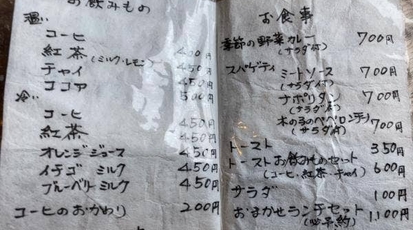 お飲みもの
温い
コーヒ
紅茶(ミルク・レモン) 450円
チャイ 450円
ココア 500円
冷い
コーヒ 450円
紅茶 450円
オレンジジュース 450円
イチゴミルク 450円
ブルーベリミルク 450円
コーヒのおかわり 200円
お食事
季節の野菜カレー 700円
(サラダ付)
スパゲティ ミートソース 700円
(サラダ付)
ナポリタン 700円
(サラダ付)
木の子のペペロンチーノ 700円
(サラダ付)
トースト 350円
トーストお飲みものセット 600円
(コーヒ・紅茶・チャイ)
サラダ 100円
おまかせランチセット 1,100円
(必予約)